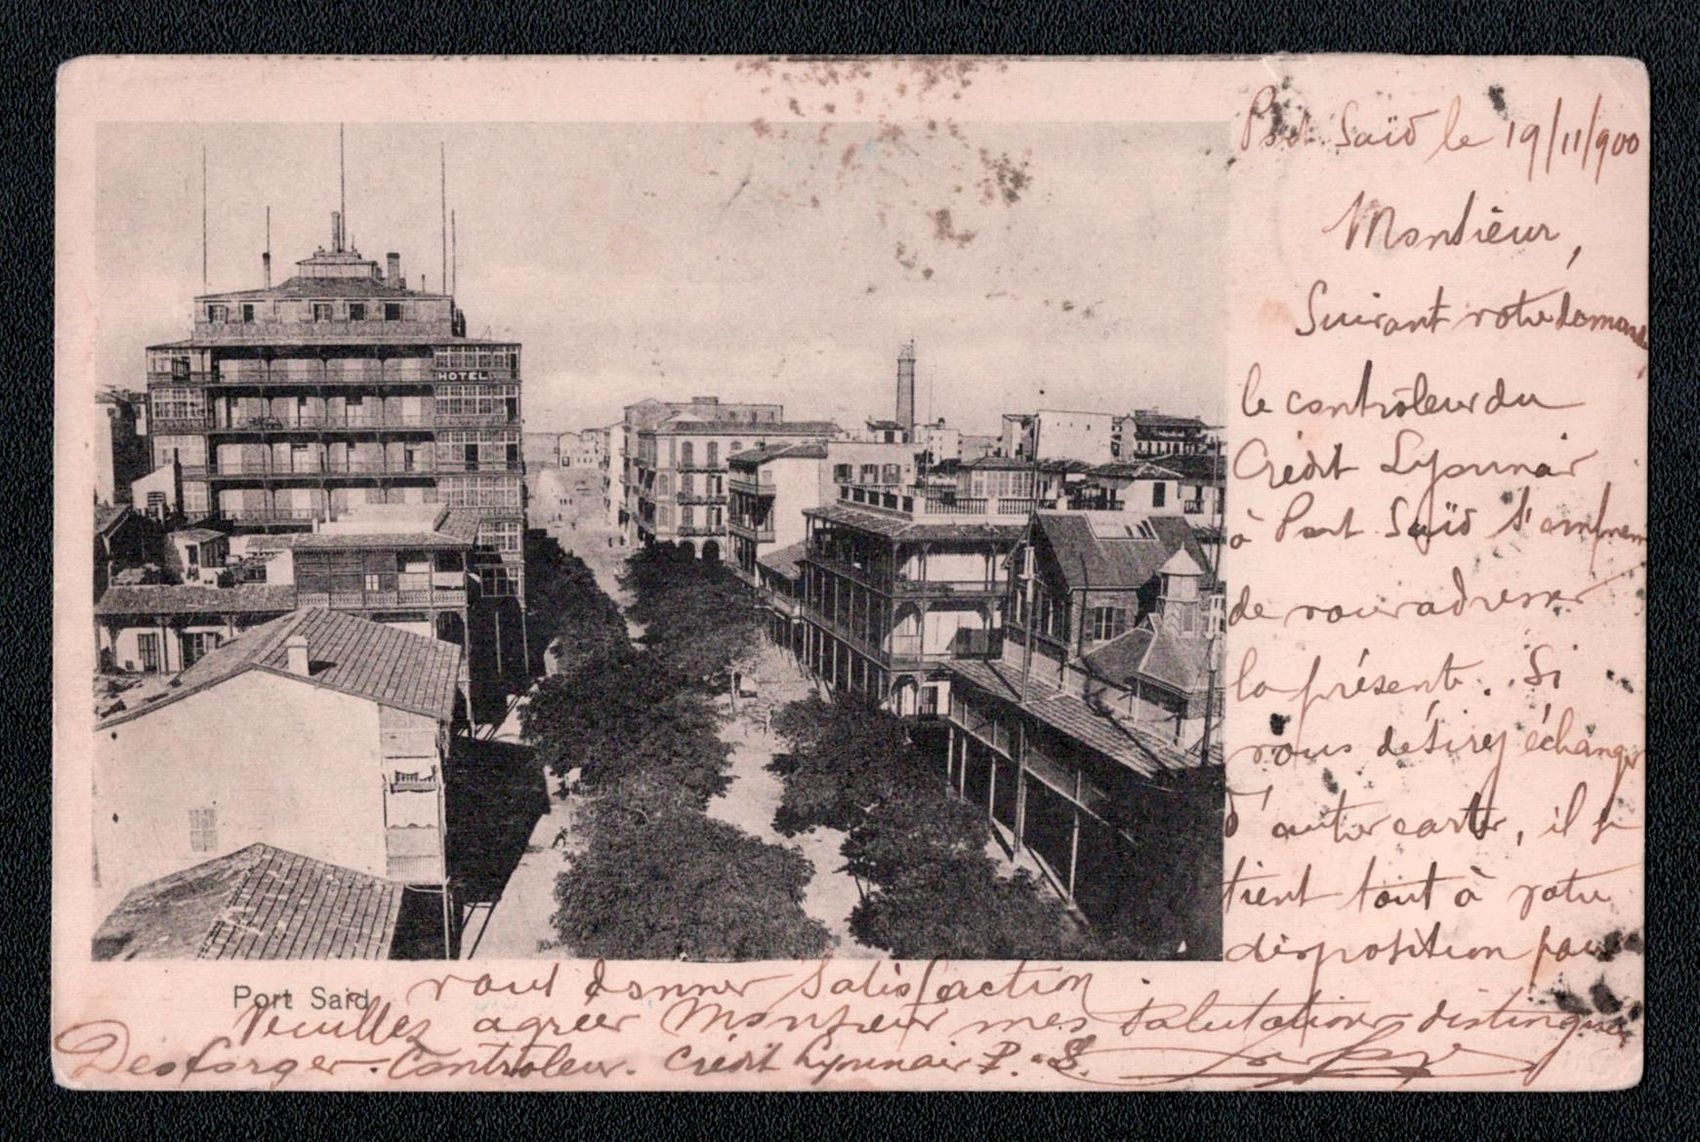 Port Saïd le 19/11/900
Monsieur,
Suivant votre demande
le contrôleur du
Crédit Lyonnais
à Port Saïd s'empresse
de vous adresser
la présente. Si
vous désirez échanger
d'autres cartes, il se
tient tout à votre
disposition pour
vous donner satisfaction.
Veuillez agréer Monsieur mes salutations distinguées
Desforges. Contrôleur. Crédit Lyonnais P. S.
HOTEL
Port Said